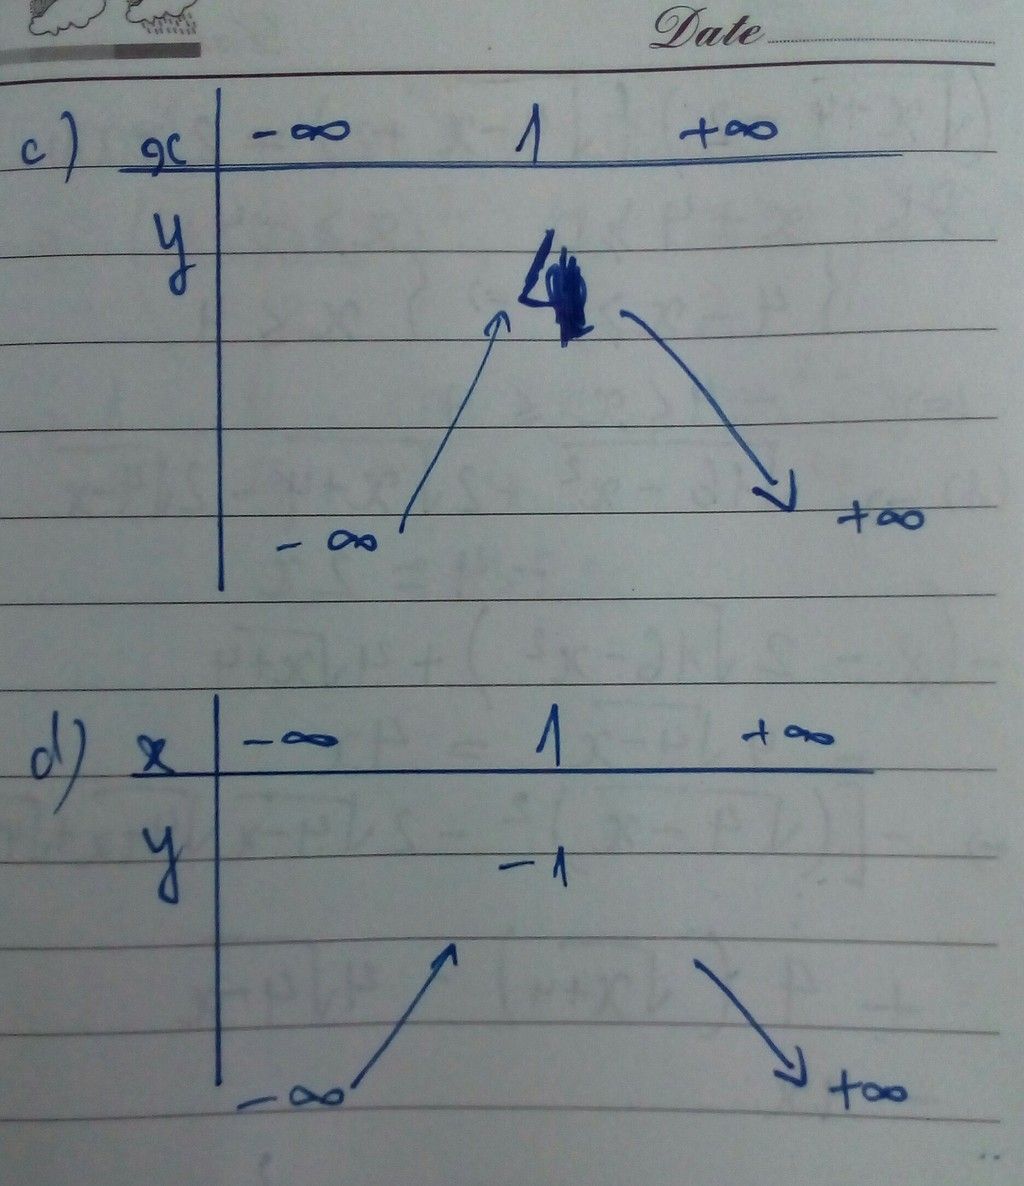 Date
c) x -∞ 1 +∞
y
4
-∞ +∞
d) x -∞ 1 +∞
y
-1
-∞ +∞